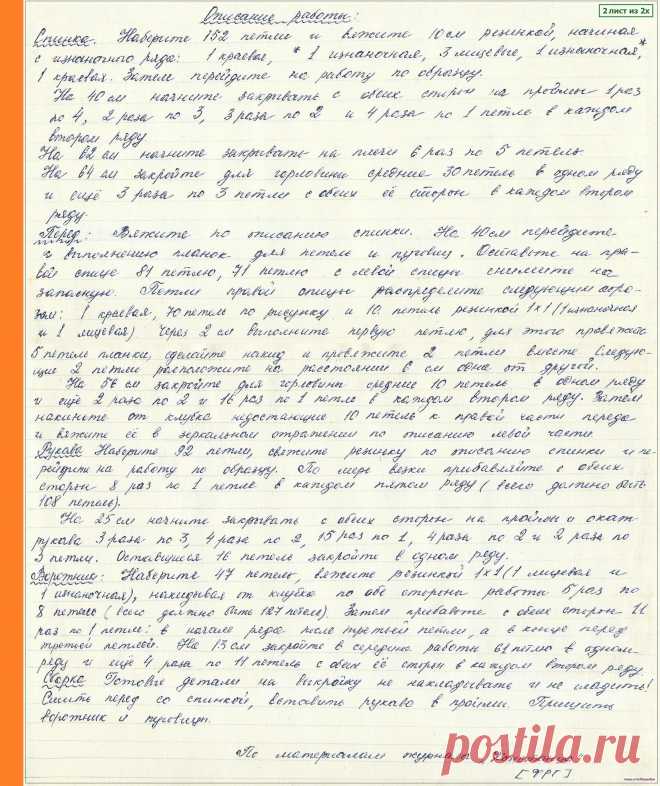 2 лист из 2х
Описание работы:
Спинка. Наберите 152 петли и вяжите 10 см резинкой, начиная
с изнаночного ряда: 1 краевая, * 1 изнаночная, 3 лицевые, 1 изнаночная,*
1 краевая. Затем перейдите на работу по образцу.
На 40 см начните закрывать с обеих сторон на проймы 1 раз
по 4, 2 раза по 3, 3 раза по 2 и 4 раза по 1 петле в каждом
втором ряду
На 62 см начните закрывать на плечи 6 раз по 5 петель.
На 64 см закройте для горловины средние 30 петель в одном ряду
и ещё 3 раза по 3 петли с обеих её сторон в каждом втором
ряду.
Перед: Вяжите по описанию спинки. На 40 см перейдите
к выполнению планок для петель и пуговиц. Оставьте на пра-
вой спице 81 петлю, 71 петлю с левой спицы снимите на
запасную. Петли правой спицы распределите следующим обра-
зом: 1 краевая, 70 петель по рисунку и 10 петель резинкой 1х1 (1 изнаночная
и 1 лицевая) Через 2 см выполните первую петлю, для этого провяжите
5 петель планки, сделайте накид и провяжите 2 петли вместе. Следую-
щие 2 петли расположите на расстоянии 8 см одна от другой.
На 56 см закройте для горловины средние 10 петель в одном ряду
и ещё 2 раза по 2 и 16 раз по 1 петле в каждом втором ряду. Затем
накините от клубка недостающие 10 петель к правой части переда
и вяжите её в зеркальном отражении по описанию левой части
Рукава Наберите 92 петли, свяжите резинку по описанию спинки и пе-
рейдите на работу по образцу. По мере вязки прибавляйте с обеих
сторон 8 раз по 1 петле в каждом пятом ряду (всего должно быть
108 петель).
На 25 см начните закрывать с обеих сторон на проймы и окат
рукава 3 раза по 3, 4 раза по 2, 15 раз по 1, 4 раза по 2 и 2 раза по
3 петли. Оставшиеся 16 петель закройте в одном ряду.
Воротник: Наберите 47 петель, вяжите резинкой 1х1 (1 лицевая и
1 изнаночная), накидывая от клубка по обе стороны работы 5 раз по
8 петель (всего должно быть 127 петель). Затем прибавьте с обеих сторон 11
раз по 1 петле: в начале ряда после третьей петли, а в конце перед
третьей петлей. На 15 см закройте в середине работы 61 петлю в одном
ряду и ещё 4 раза по 11 петель с обеих её сторон в каждом втором ряду
Сборка Готовые детали на выкройку не накладывать и не гладить!
Сшить перед со спинкой, вставить рукава в проймы. Пришить
воротник и пуговицы.
По материалам журнала
[ФРГ]
postila.ru